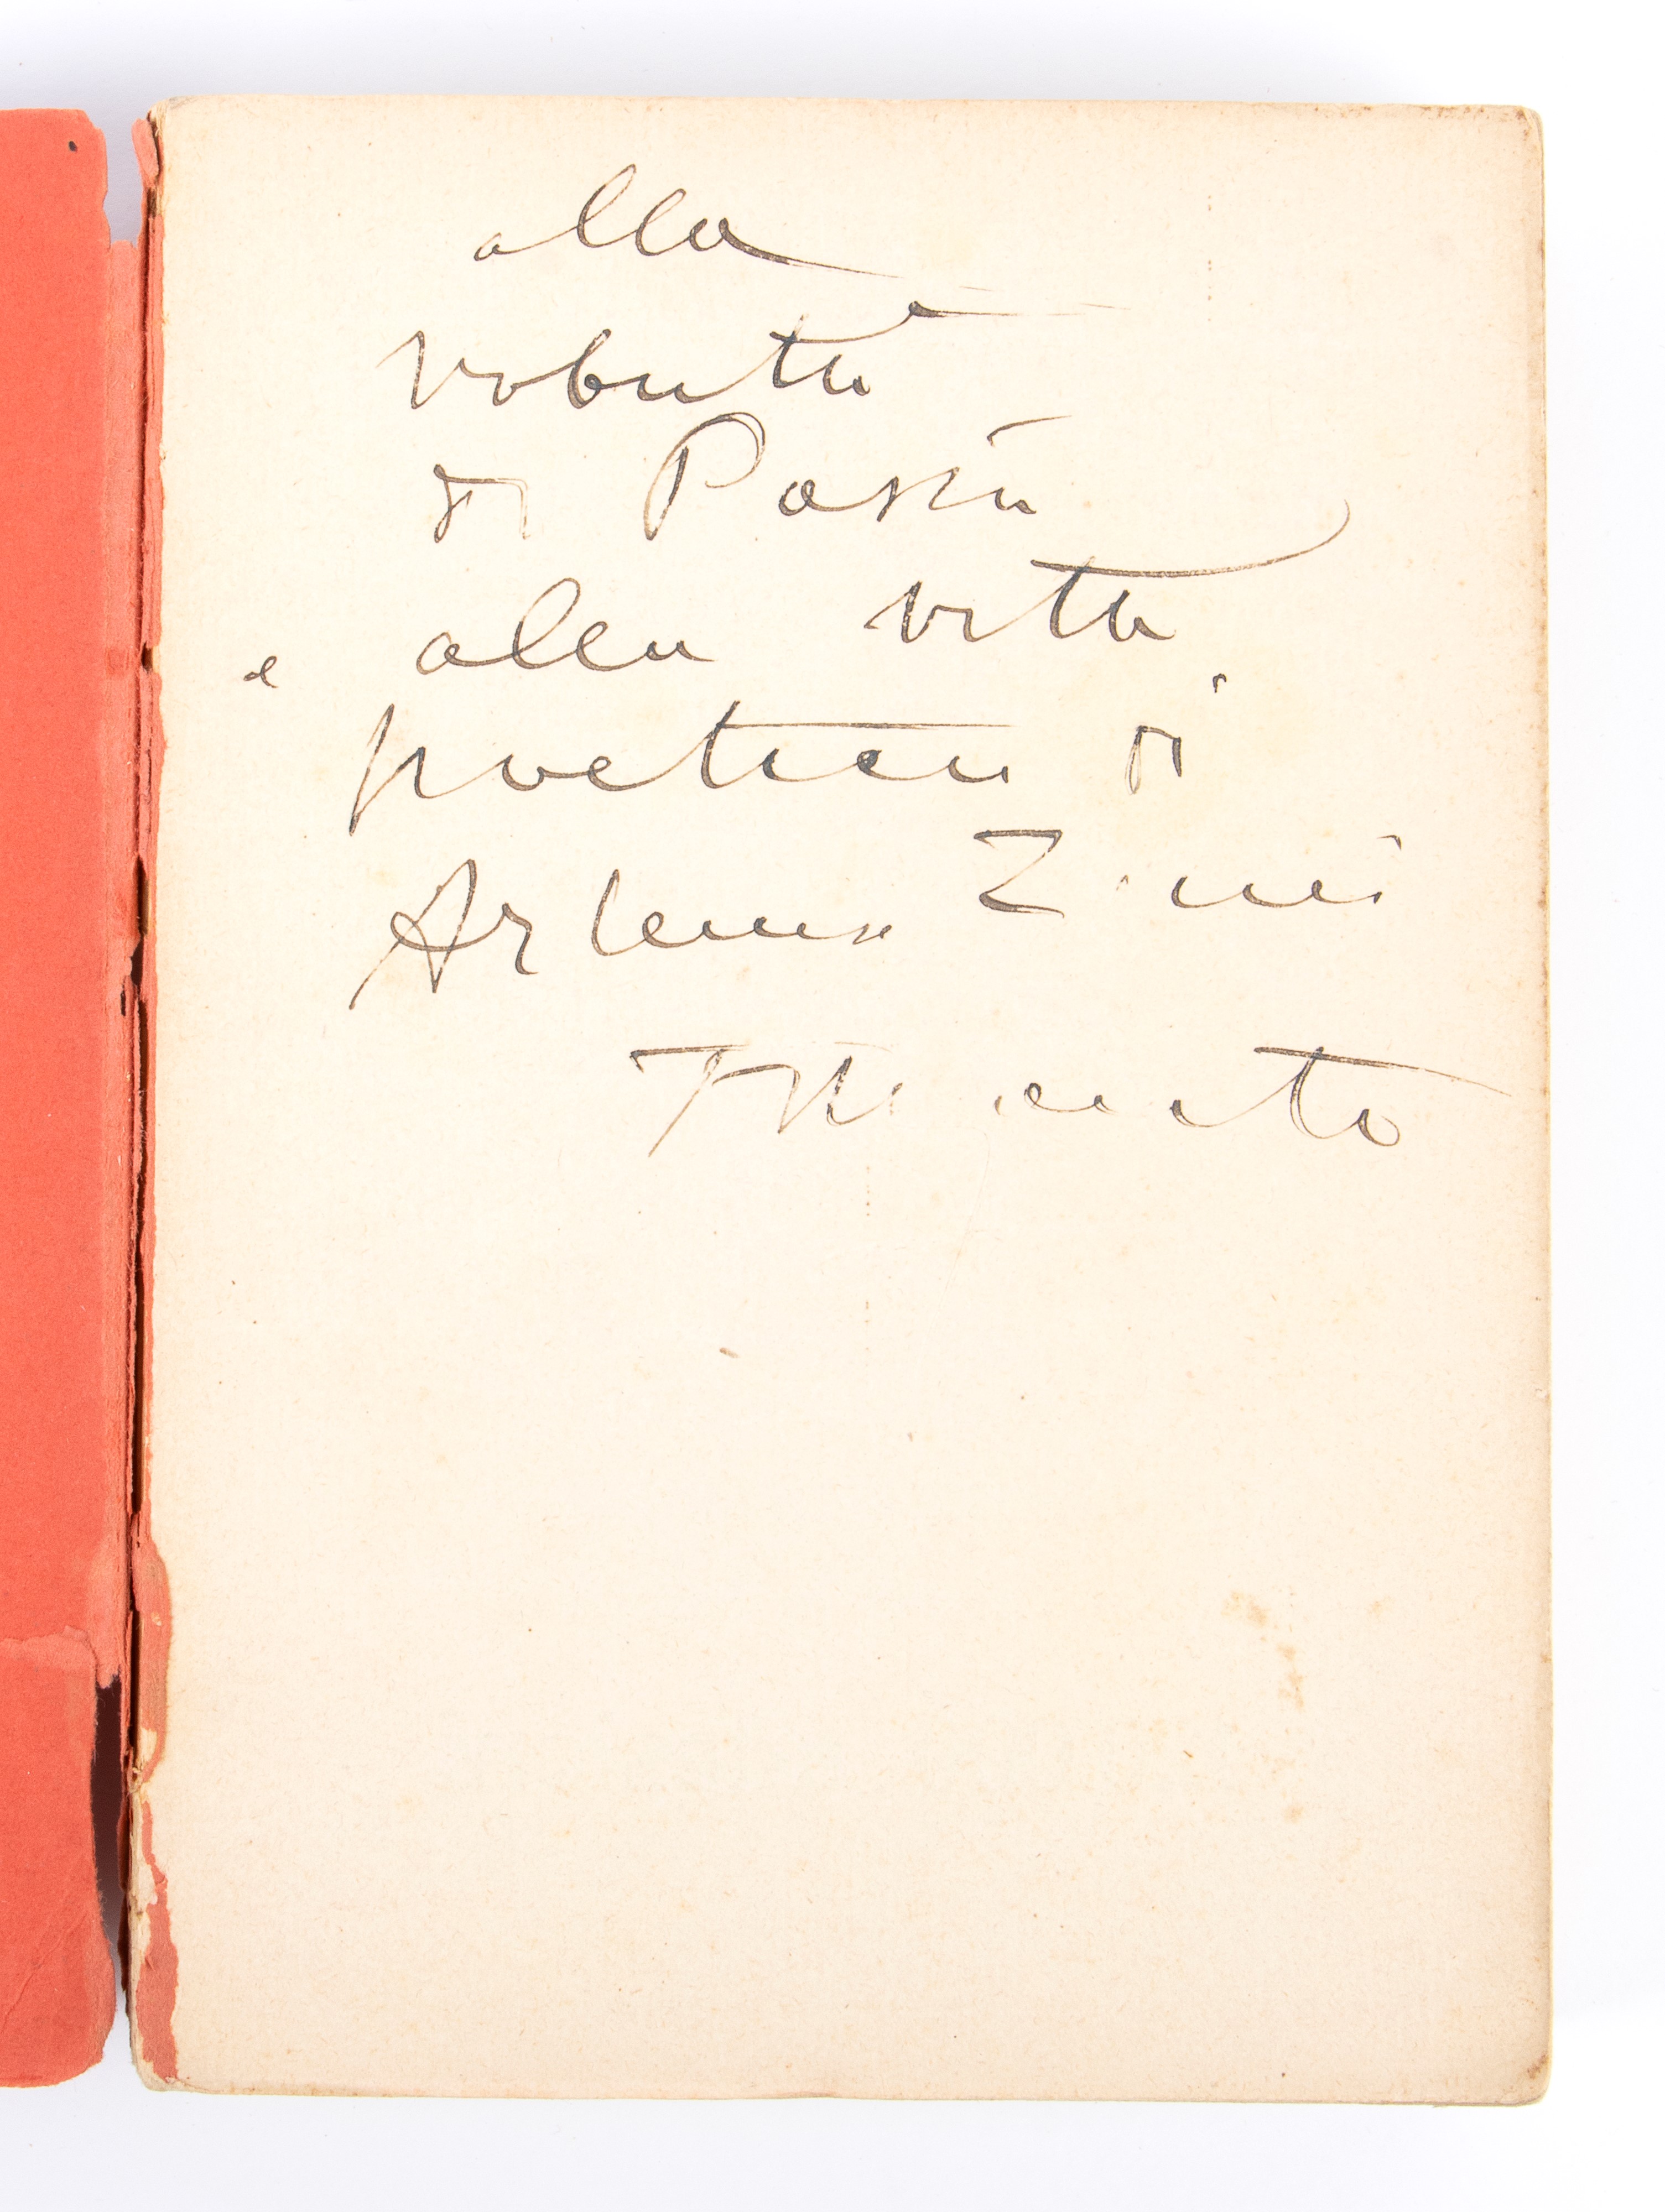 alla
volontà
di Poesia
e alla vita
poetica di
Artemisia Zimei
FTMarinetti